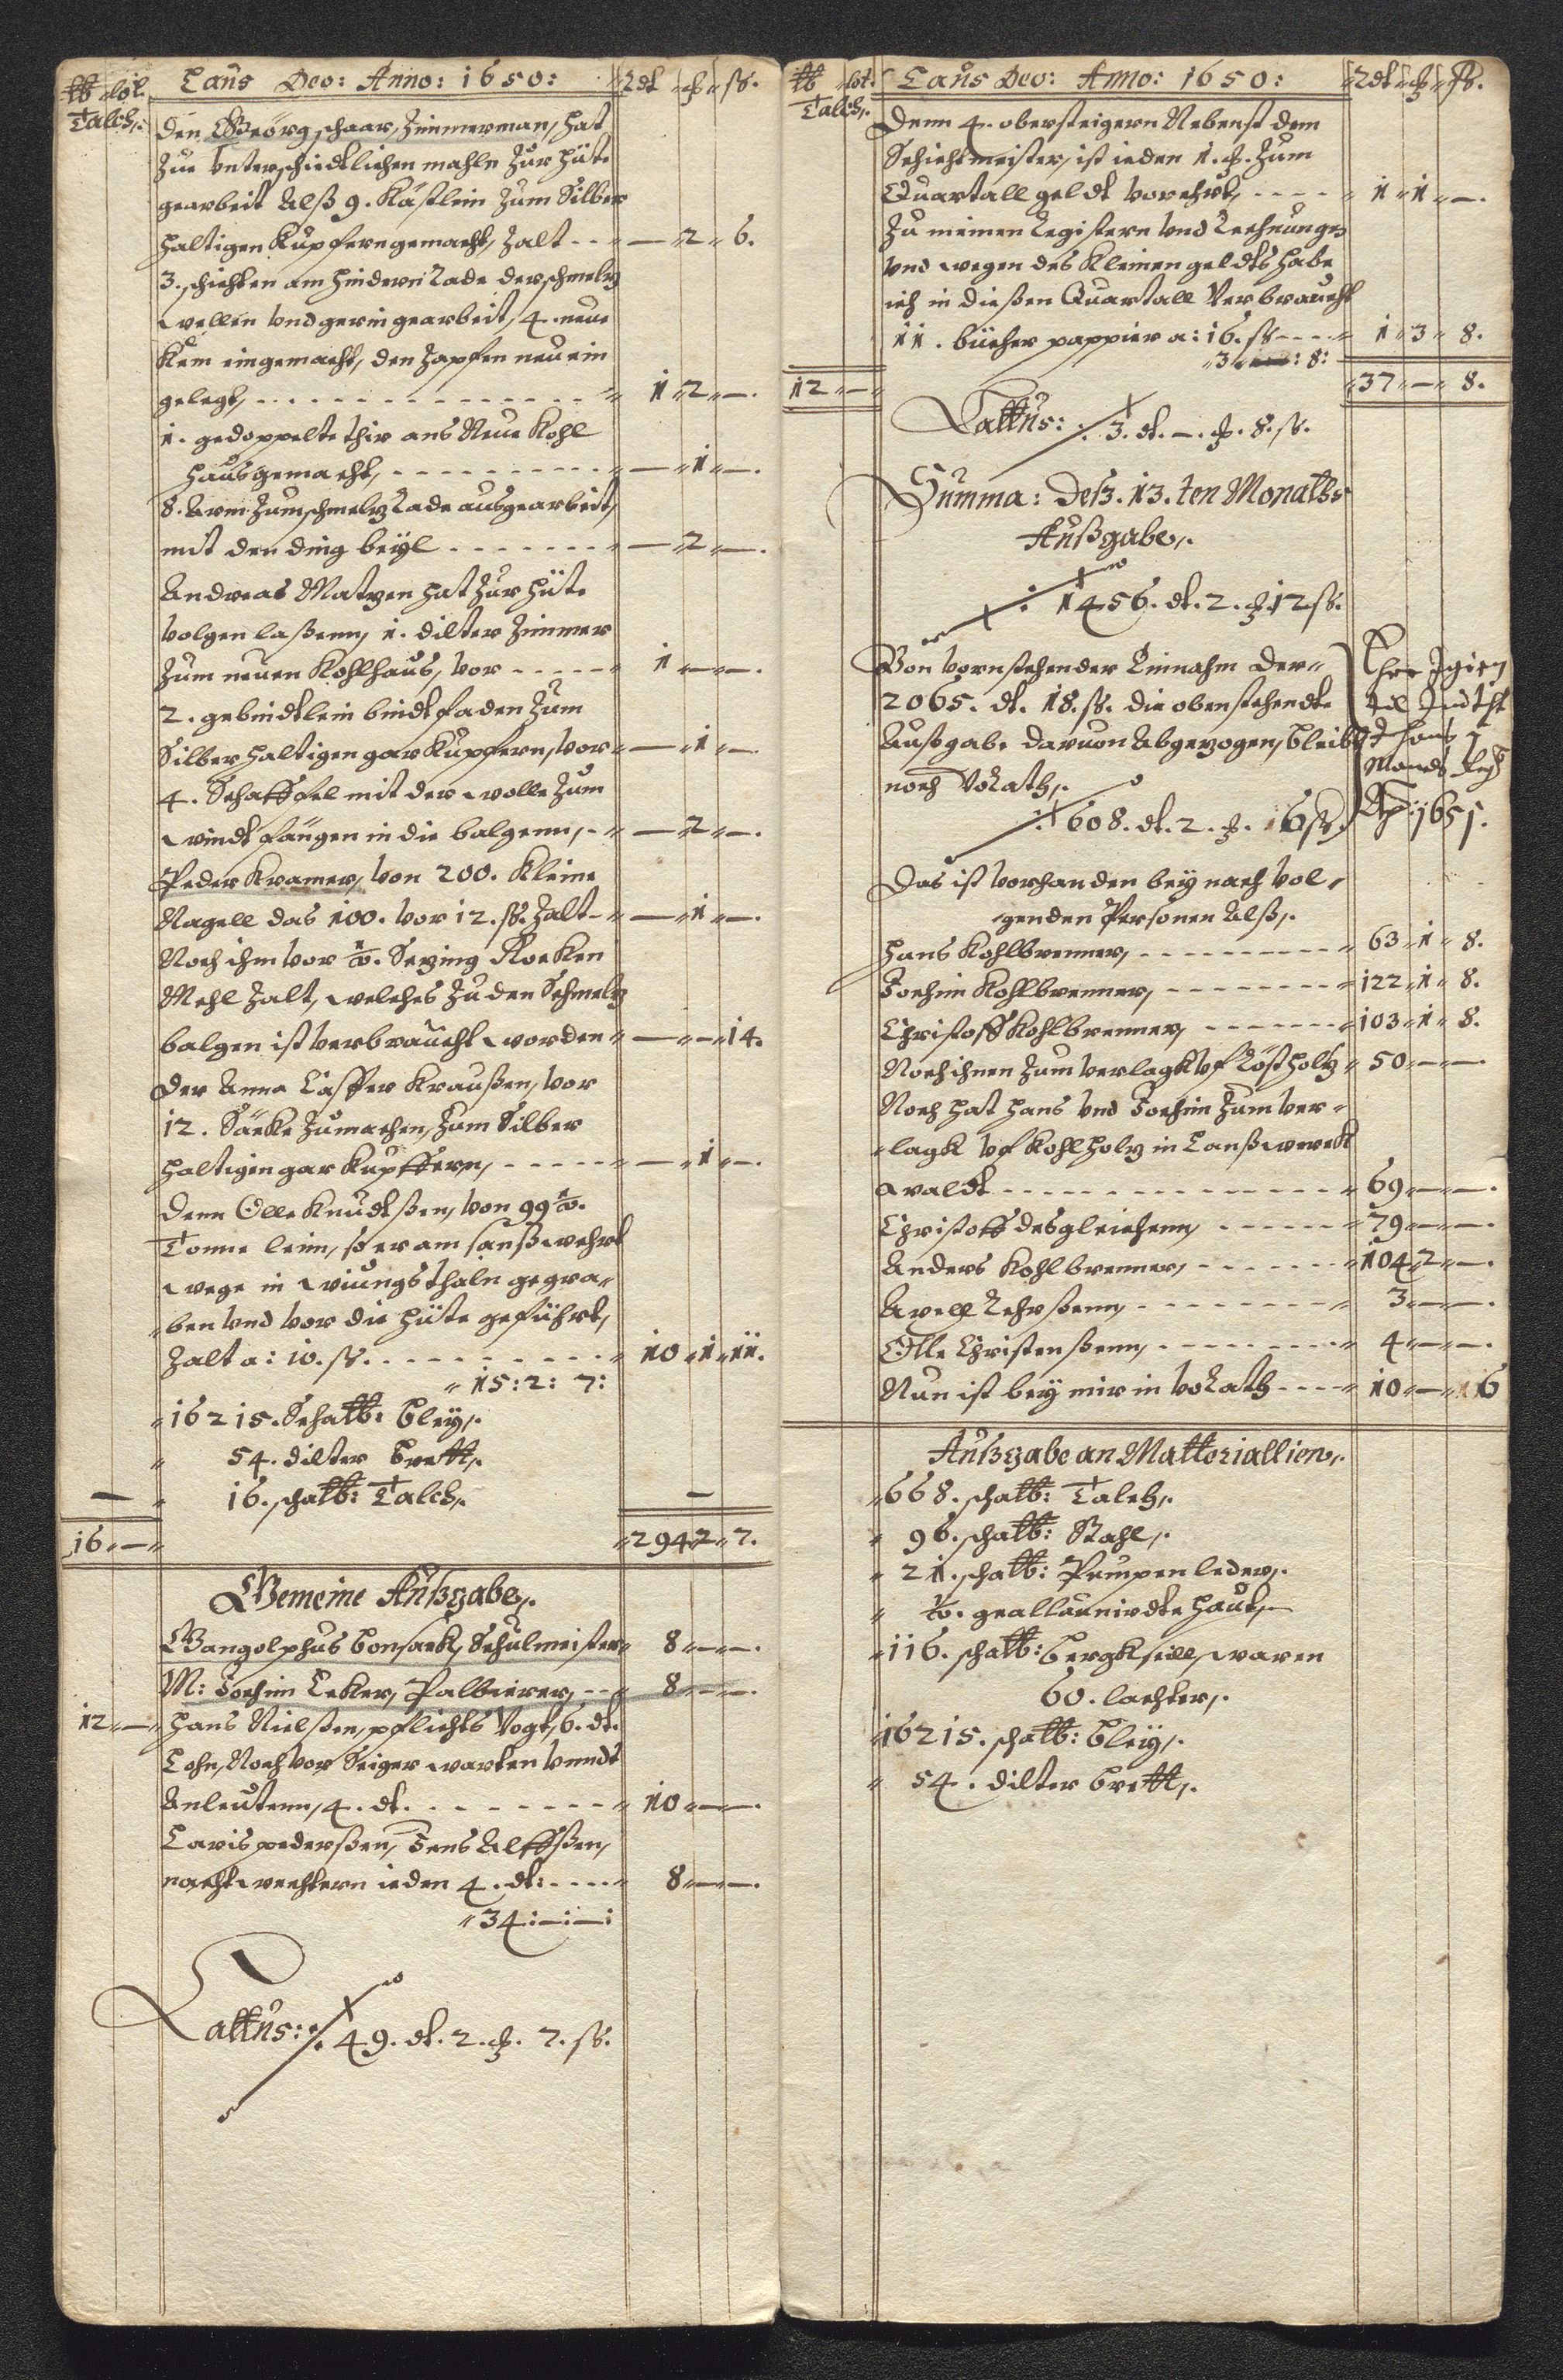 ℔ lot. Laus Deo: Anno: 1650: Rdt ₰ ß.
Talch,.
Den Geörg schaar, Zimmerman, hat
Zue Vnterschiedtlichen mahln Zur Hüte
gearbeit Alß 9. Kästlein Zum Silber
haltigen Kupfern gemacht, Zalt - - — 2 6.
3. schichten am hindern Rade der schmeltz
wellen Vnd gerin gearbeit, 4. neue
Kem eingemacht, den Zapfen neu ein
gelegt, - - - 1 2 —.
1. gedoppelte thir ans Neue Kohl
hausgemacht, - - - — 1 —.
8. Arm Zum schmeltz Rade ausgearbeit,
mit den ding beyl - - - — 2 —.
Andreas Matzen hat Zur Hüte
Volgen laßenn, 1. dilter Zimmer
Zum neuen Kohlhaus, Vor - - - 1 — —.
2. gebindtlein bindtfaden Zum
Silberhaltigen gar Kupfern, Vor — 1 —
4. Schafffel mit der wolle Zum
windtfängen in die balgenn, - — 2 —.
Peder Kramer, Von 200. Kleine
Nagell das 100. Vor 12. ß. Zalt - — 1 —.
Noch ihm Vor ½. Sezing Rocken
Mehl Zalt, welches Zu den Schmeltz
balgen ist Verbraucht worden — — 14.
Der Anna Casper Kraußen, Vor
12. Säcke Zumachen, Zum Silber
haltigen gar Kupffern, - - - — 1 —.
Denn Olle Knudtßen, Von 99 ½.
Tonne leim, so er am sanßwehrt
wege in wiungsthaln gegra-
ben Vnd Vor die Hüte geführt,
Zalt a: 10. ß. - - - 10 1 11.
15: 2: 7:
16215. Schalb: Bley,.
54. dilter Brett,.
— 16. schalb: Talch,. —
16 — 294 2 7.
Gemeine Außgabe,.
Gangolphus Bonsack, Schulmeister 8 — —.
M: Jochim Leker, Palbierer, - - 8 — —.
12 — Hans Nielßen, pflichts Vogt, 6. dt.
Lohn, Noch Vor Seiger warten Vnndt
Anleutenn, 4. dt. - - - 10 — —.
Laris pederßen, Jens Alffßen,
nachtwechtern ieden 4. dt: - - - 8 — —.
34: —: —:
Lattus: 49. dt. 2. ₰. 7. ß.
℔ lot. Laus Deo: Anno: 1650: Rdt ₰ ß.
Talch,.
Denn 4. obersteigern Nebenst dem
Schichtmeister, ist ieden 1. ₰. Zum
Quartall geldt Vorehrt, - - - 1 1 —.
Zu meinen Registern Vnd Rechnungen
Vnd wegen des Kleinen geldts habe
ich in dießen Quartall Verbraucht
11. bücher pappier a: 16. ß - - - 1 3 8.
3 : 8:
12 — 37 — 8.
Lattus: 3. dt. —. ₰. 8. ß.
Summa: Deß. 13. ten Monatts
Außgabe,.
1456. dt. 2. ₰. 12 ß.
Von Vornstehender Einnahm der
2065. dt. 18. ß. die obenstehendte
Außgabe daruon Abgezogen, Bleibt
noch VoRath,.
608. dt. 2. ₰. 6 ß.
1651.
Das ist Vorhanden bey nach Vol-
genden Personen Alß,.
Hans Kohlbrenner, - - - 63 1 8.
Jochim Kohlbrenner, - - - 122 1 8.
Christoff Kohlbrenner, - - - 103 1 8.
Noch ihnen Zum Verlagk Vf Röstholtz 50 — —.
Noch hat Hans Vnd Jochim Zum Ver-
lagk Vf Kohlholtz in Lanßwerck
waldt - - - 69 — —.
Christoff desgleichenn, - - - 79 — —.
Anders Kohlbrenner, - - - 104 2 —.
Axell Lehrßenn, - - - 3 — —.
Olle Christenßenn, - - - 4 — —.
Nun ist bey mir in VoRath - - - 10 — 16
Außgabe an Mattoriallien,.
668. schalb: Talch,.
96. schalb: Stahl,.
21. schalb: Pumpen leder,.
½. geallaunirdte Haut,
116. schalb: Bergkseill, waren
60. lachter,.
16215. schalb: Bley,.
54. dilter Brett,.